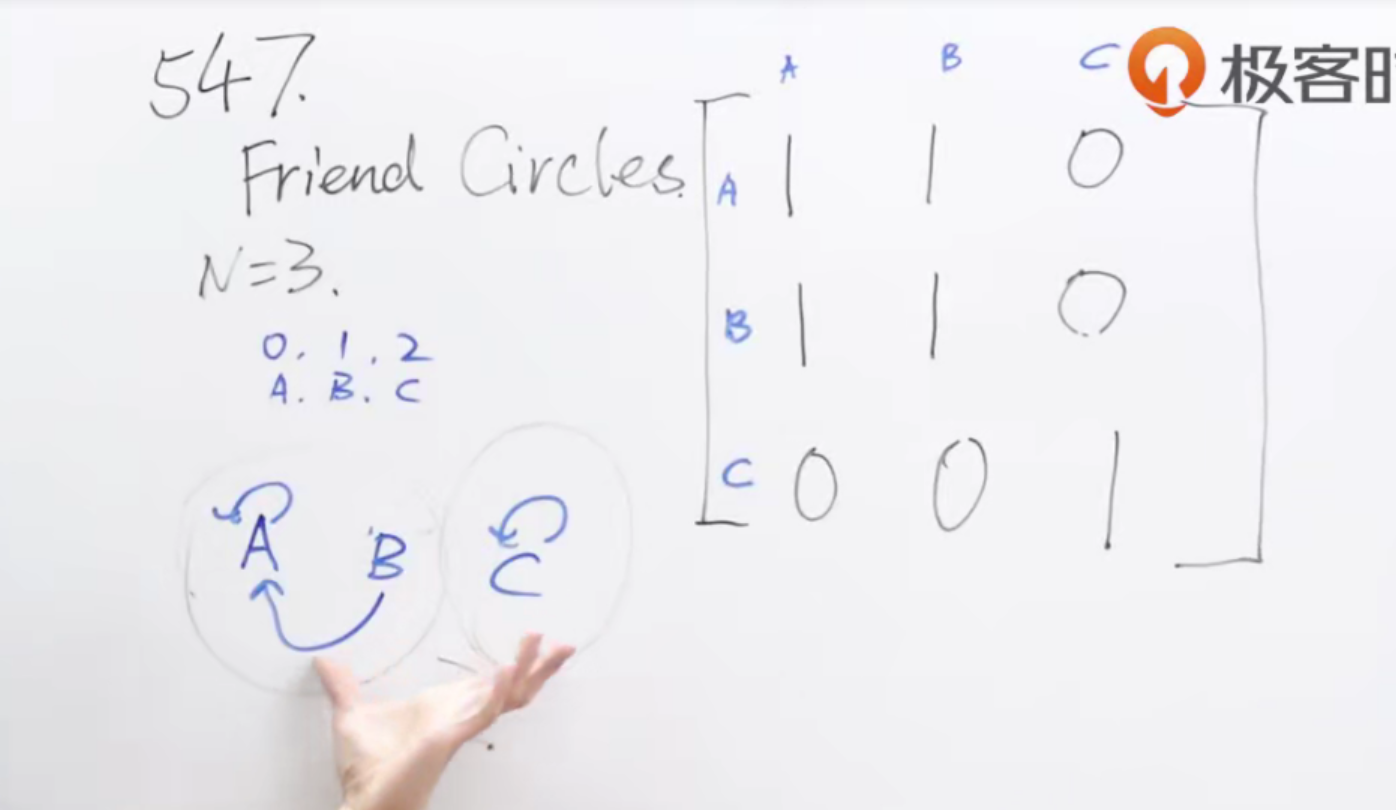 547.
Friend Circles
N=3.
0. 1. 2
A. B. C
A B C
A B C
A 1 1 0
B 1 1 0
C 0 0 1
极客时